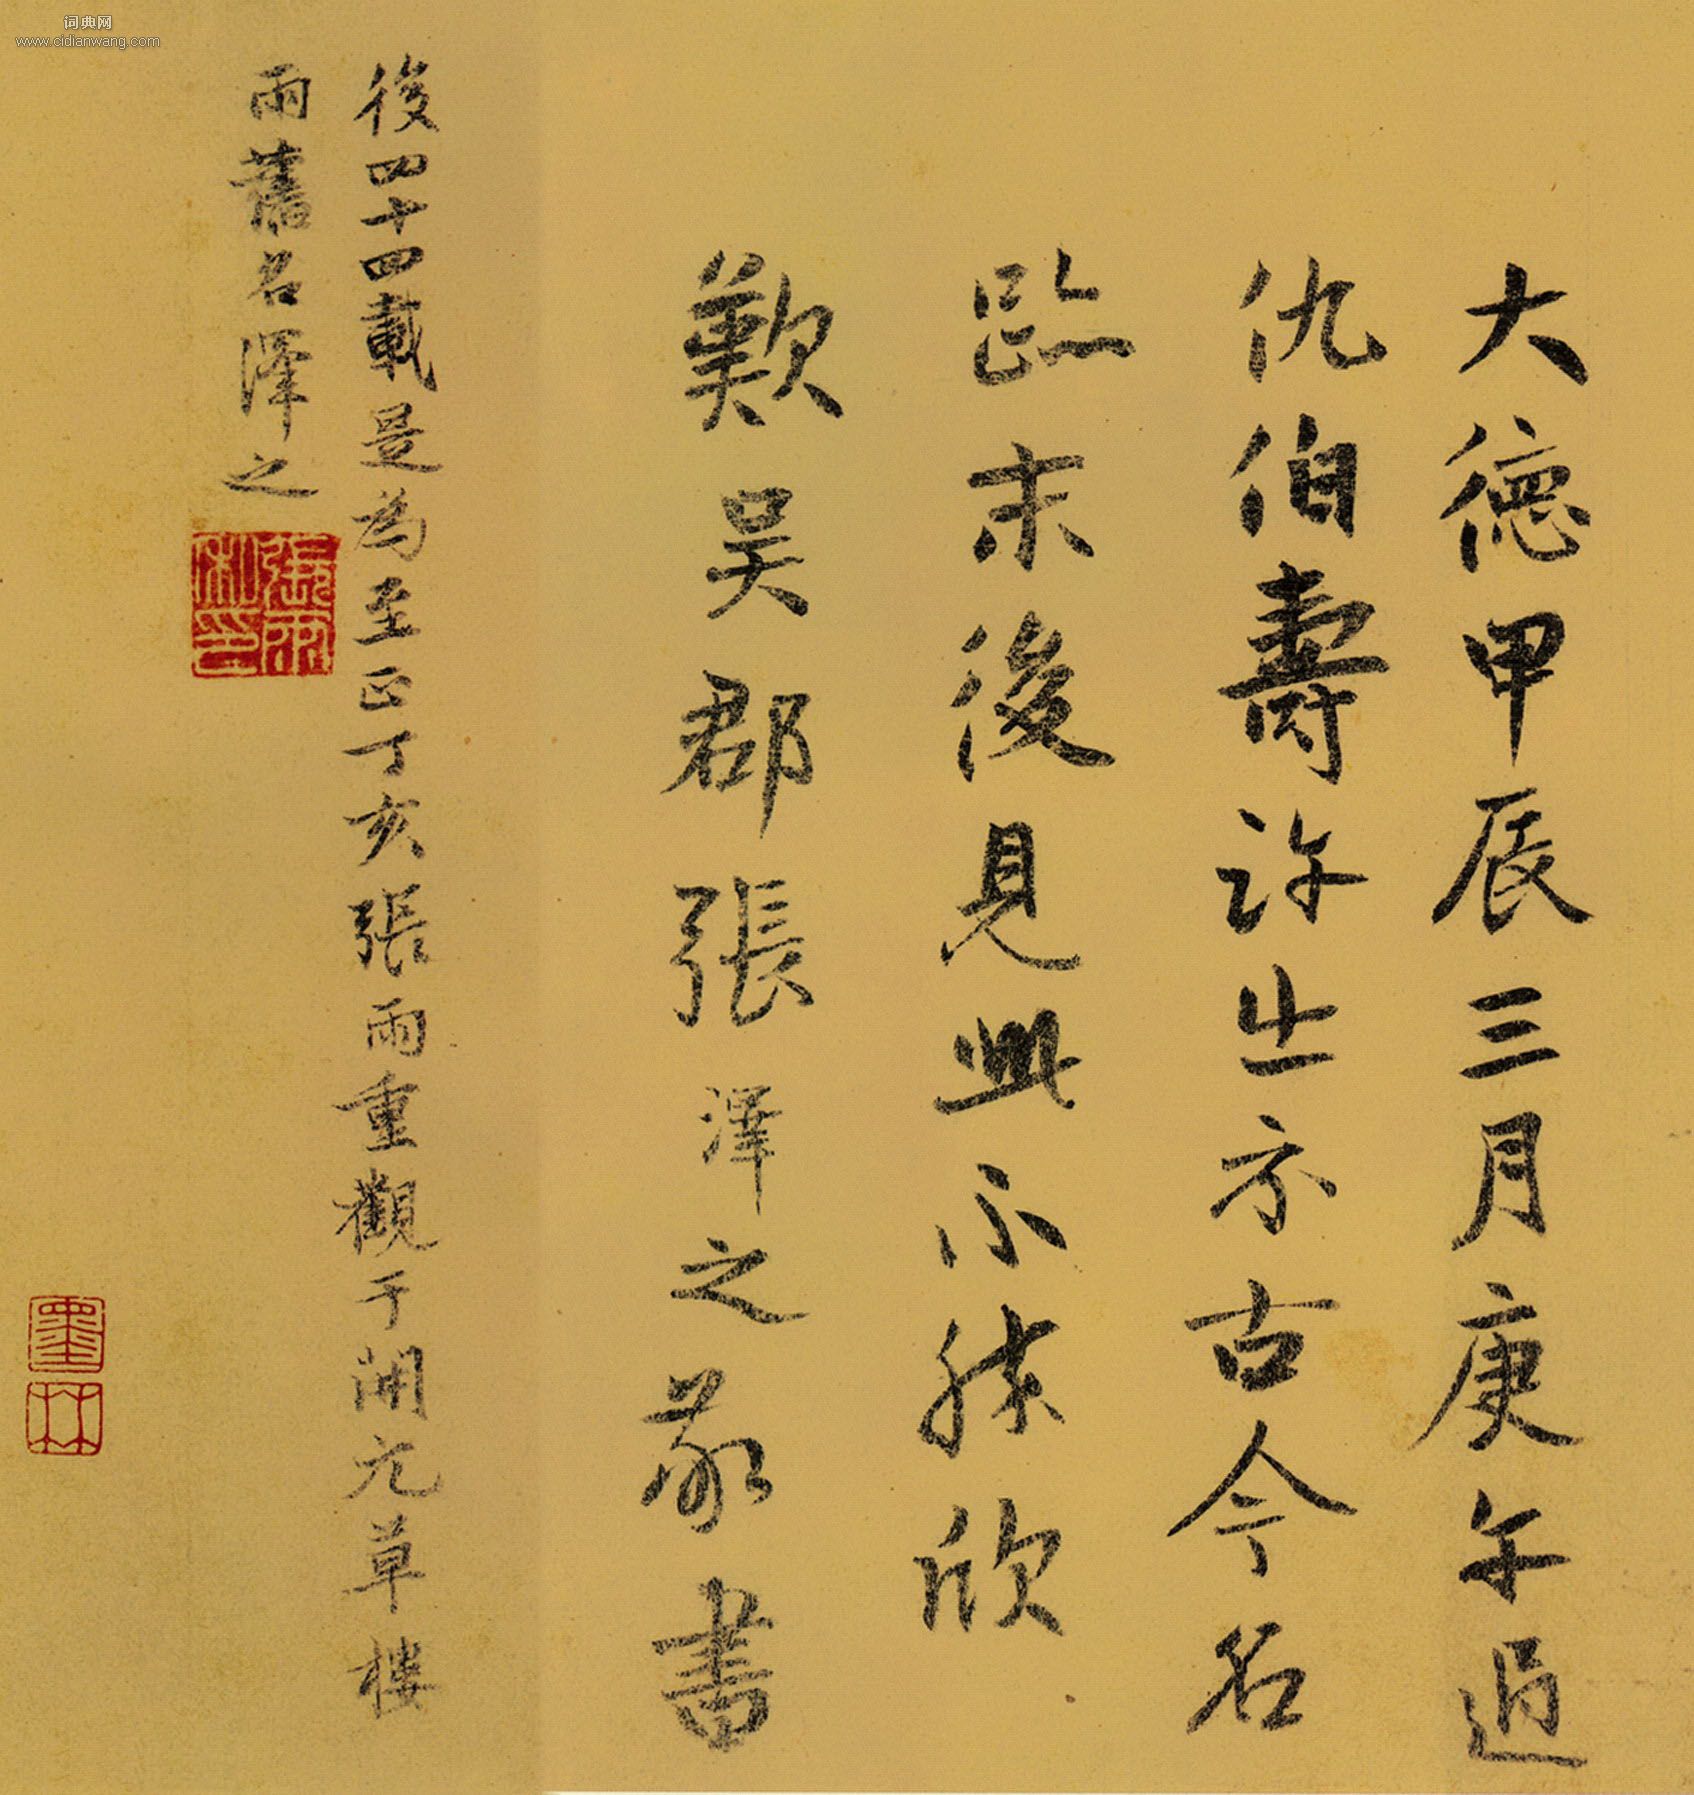 词典网
www.cidianwang.com
大德甲辰三月庚午過
仇伯壽許出示古今名
跡末後見此不勝欣
歎吳郡張澤之敬書
後四十四載是為至正丁亥張雨重觀于開元草樓
雨舊名澤之
張雨
私印
墨
林